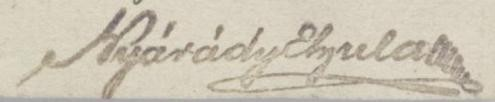 Nyárády Gyula